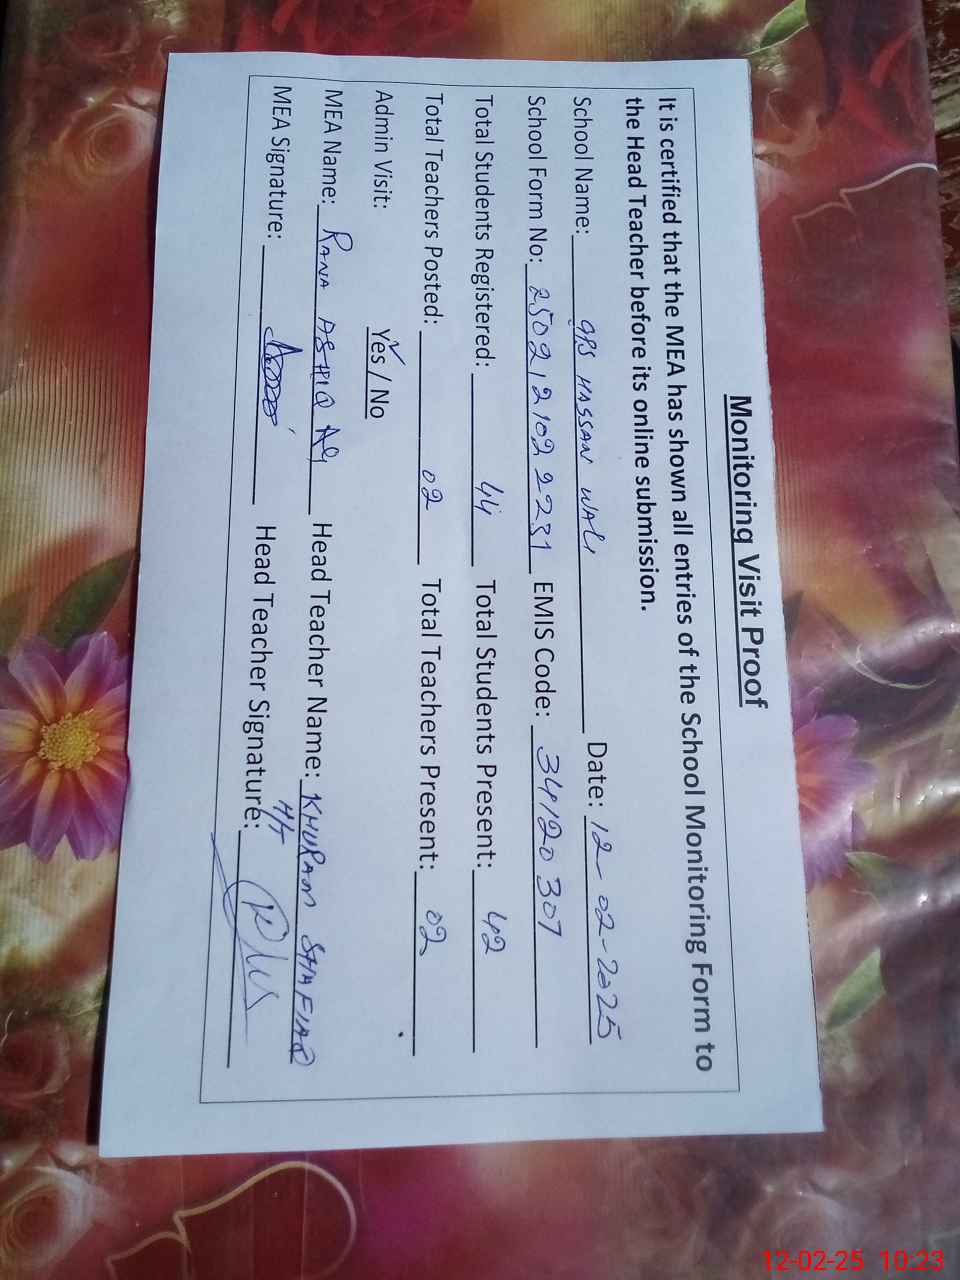 Monitoring Visit Proof
It is certified that the MEA has shown all entries of the School Monitoring Form to
the Head Teacher before its online submission.
School Name: GPS HASSAN WALI Date: 12-02-2025
School Form No: 2502121022231 EMIS Code: 34120307
Total Students Registered: 44 Total Students Present: 42
Total Teachers Posted: 02 Total Teachers Present: 02
Admin Visit: Yes / No
MEA Name: RANA ASHIQ Ali Head Teacher Name: KHURAM SHAFIAQ
MEA Signature: Head Teacher Signature:
H/T
12-02-25 10:23